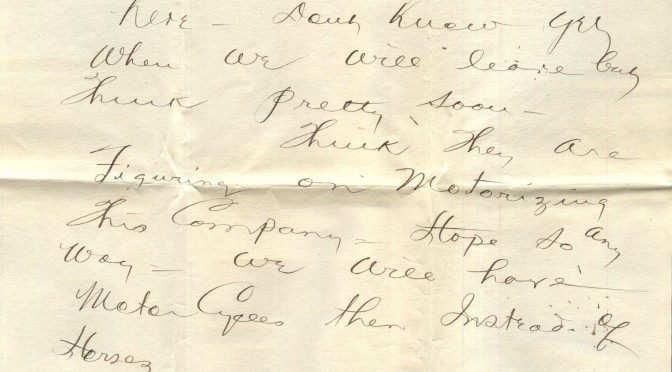 here - Dont Know yet
When we will leave but
Think pretty soon -
Think They are
Figuring on Motorizing
This Company - Hope so any
way - we will have
Motor Cycles then Instead of
Horses